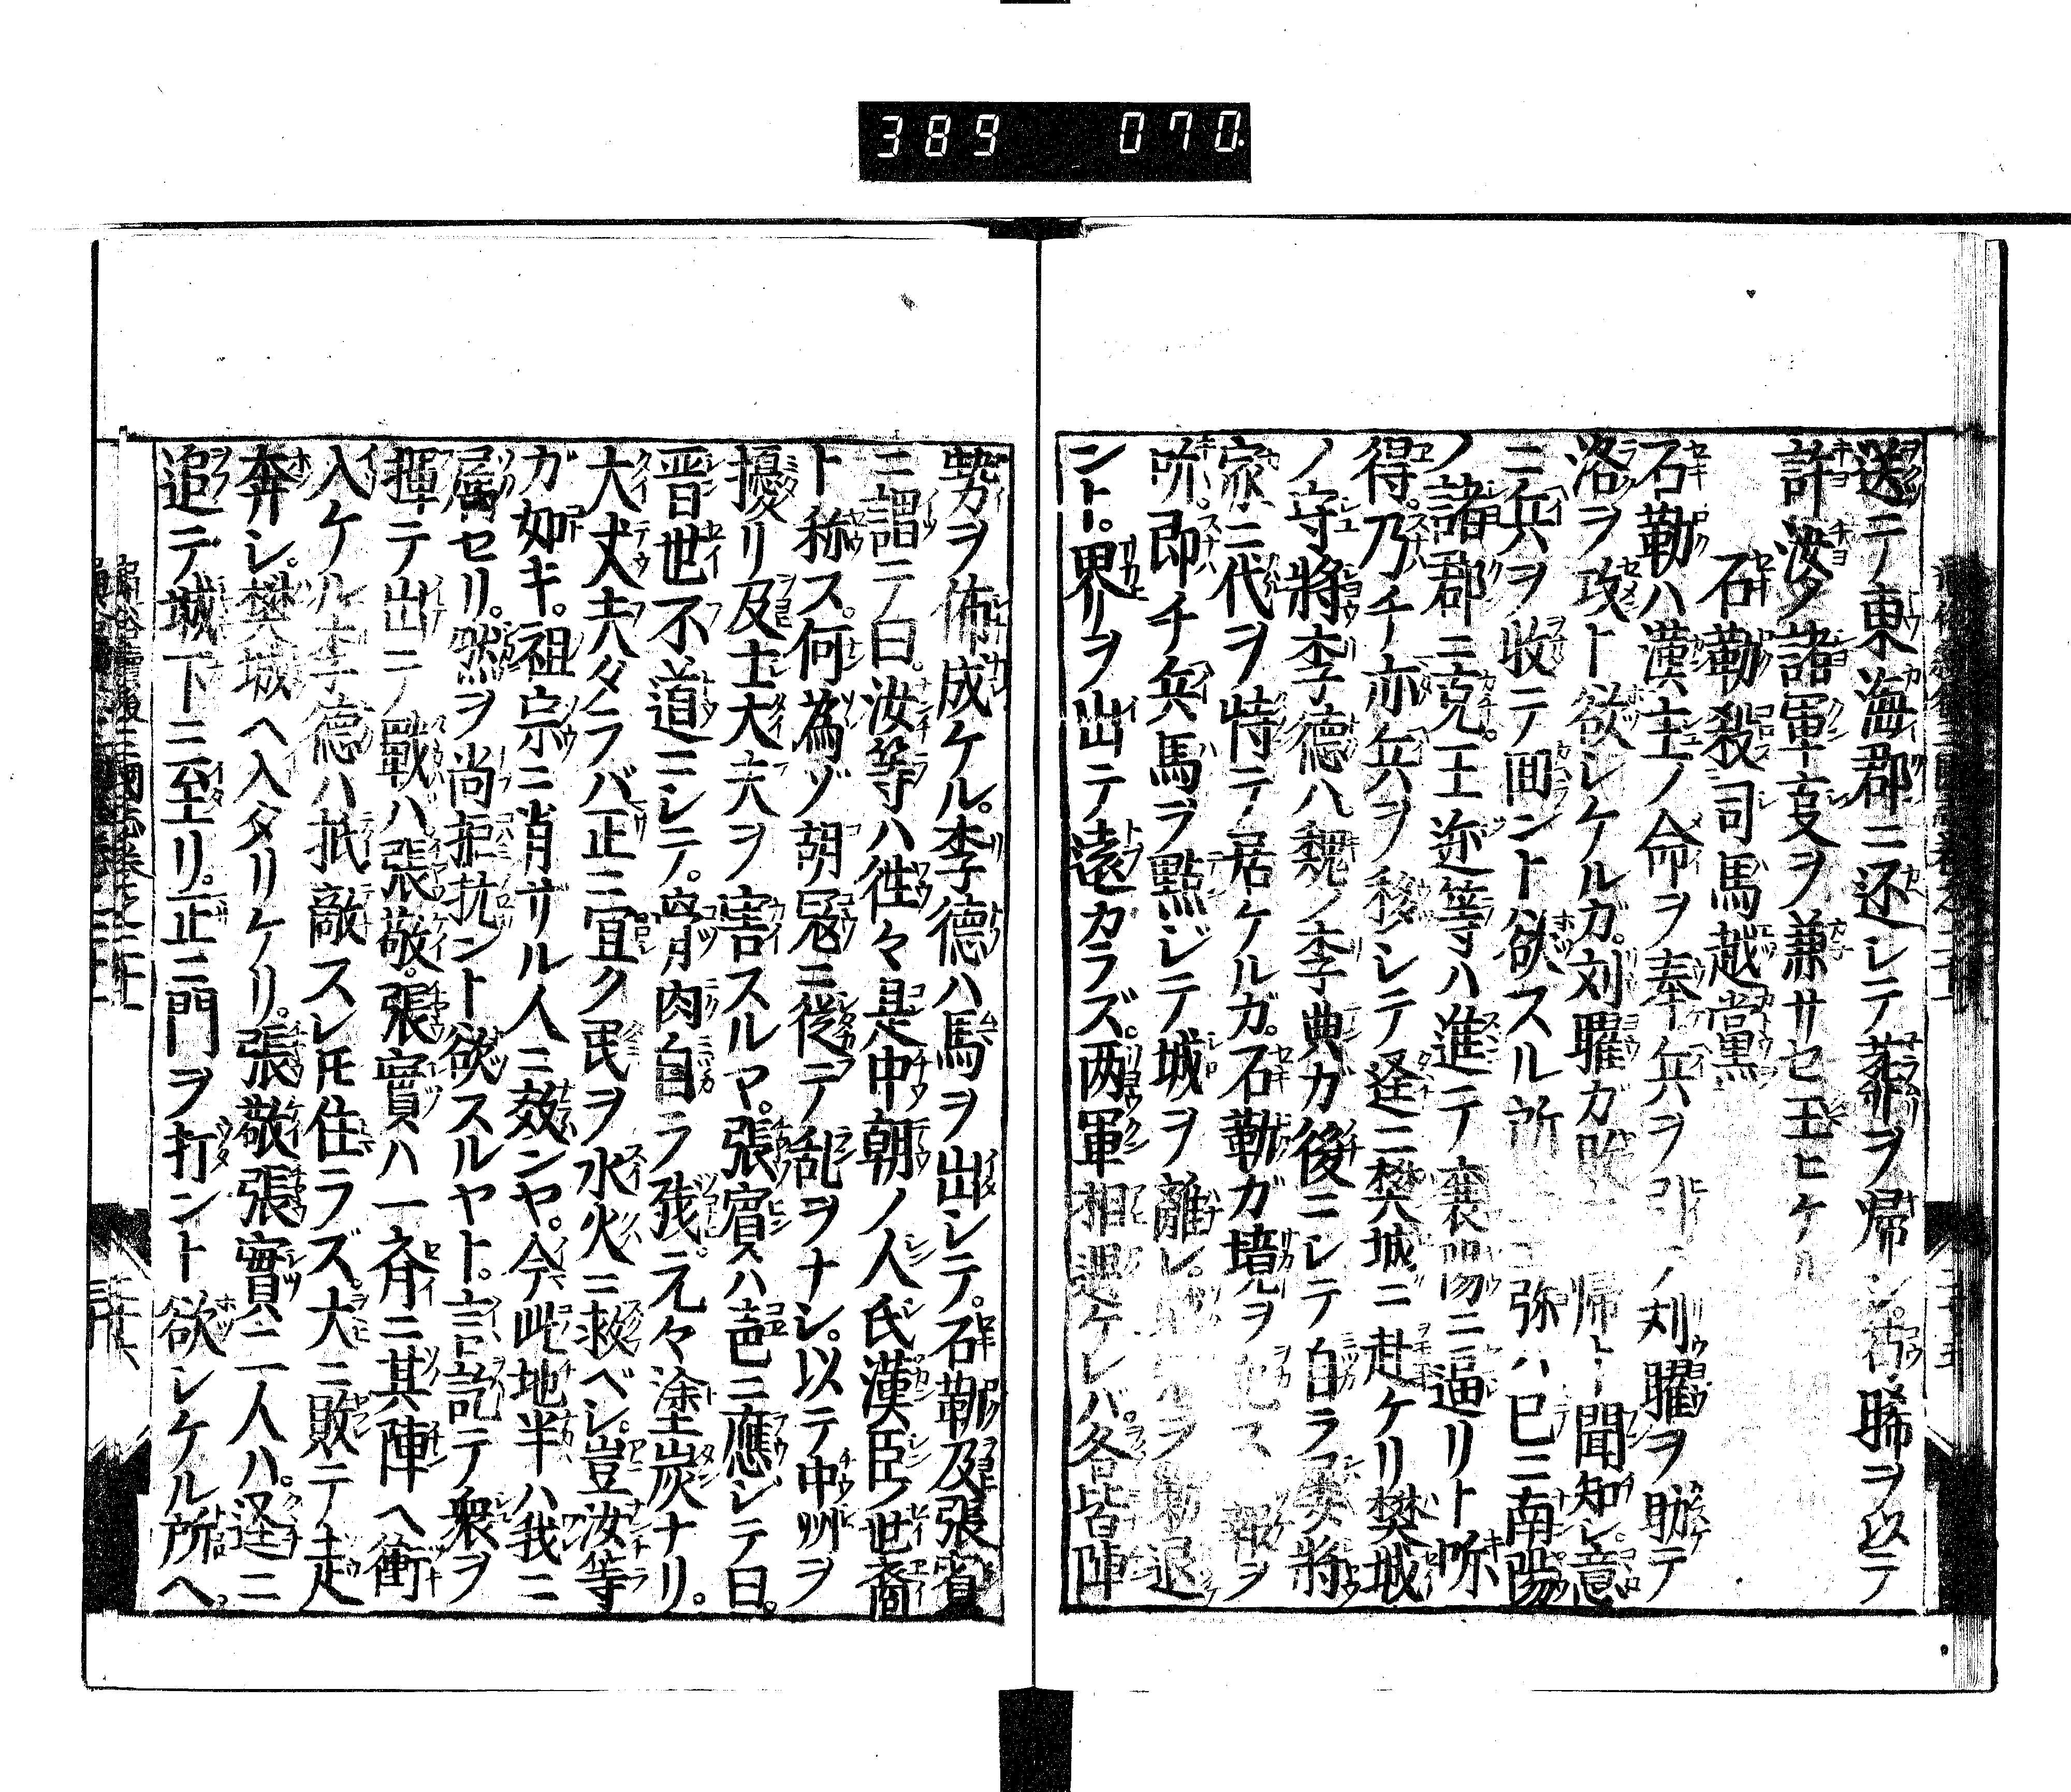 389 070
送テ東海郡ニ还シテ葬ヲ帰シ苟晞ヲ以テ
許汝タ諸軍亊ヲ兼サセ玉ヒケル
石勒殺司馬越黨
石勒ハ漢主ノ命ヲ奉兵ヲ引テ刘曜ヲ助テ
洛ヲ攻ト欲シケルガ刘曜ガ 帰ト聞知シ意
ニ兵ヲ收テ回ント欲スル所 王弥ハ巳ニ南陽
ノ諸郡ニ克王迩等ハ進テ襄陽ニ逼リト听
得乃チ亦兵ヲ移シテ逕ニ樊城ニ赴ケリ樊城
ノ守將李德ハ魏ノ李典ガ後ニシテ自ラ將
家ニ代ヲ恃テ居ケルガ石勒ガ境ヲ犯ス報ヲ
听即チ兵馬ヲ點ジテ城ヲ離レ ヲ勒退
ント界リヲ出テ遠カラズ两軍相遇ケレバ各皆陣
勢ヲ佈成ケル李德ハ馬ヲ出シテ石勒及張賓
ニ謂テ曰汝等ハ徃々是中朝ノ人氏漢臣ノ世裔
ト称ス何為ゾ胡冦ニ從テ乱ヲナシ以テ中州ヲ
擾リ及士大夫ヲ害スルマ張賓ハ声ニ應シテ曰
晋世不道ニシテ骨肉自ラ残ニ元々塗炭ナリ
大丈夫タラバ正ニ宜ク民ヲ水火ニ救ベシ豈汝等
ガ如キ祖宗ニ肖ザル人ニ效ンヤ今此地半ハ我ニ
属セリ然ヲ尚拒抗ント欲スルヤト言訖テ衆ヲ
揮テ出ニテ戰ハ張敬張實ハ一齊ニ其陣ヘ衝
入ケル李德ハ抵敵スレ圧住ラズ大ニ敗テ走
奔シ樊城ヘ入タリケリ張敬張實二人ハ逕ニ
追テ城下ニ至リ正ニ門ヲ打ント欲シケル所ヘ